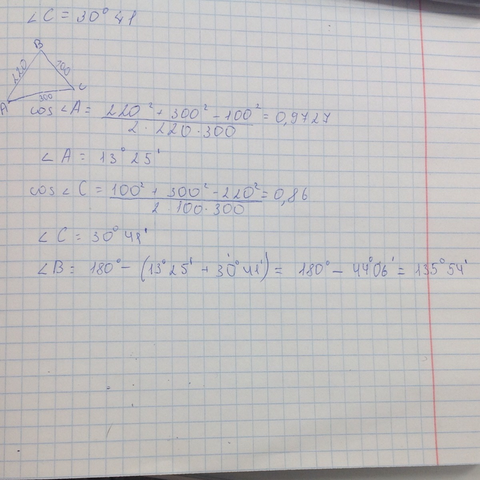 ∠C = 30° 41
B
220
100
A
300
C
cos∠A = (220² + 300² - 100²) / (2 · 220 · 300) = 0,9727
∠A = 13° 25'
cos∠C = (100² + 300² - 220²) / (2 100 · 300) = 0,86
∠C = 30° 41'
∠B = 180° - (13° 25' + 30° 41') = 180° - 44° 06' = 135° 54'